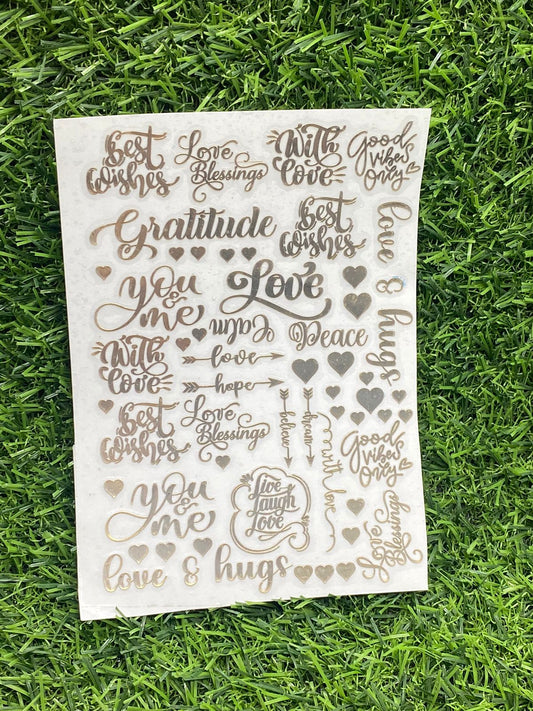 Best
Wishes
Love
Blessings
With
Love
Good
vibes
only
Gratitude
Best
Wishes
love & hugs
you
&
me
Love
Calm
Peace
With
Love
love
hope
believe
dream
with love
Best
Wishes
Love
Blessings
Good
vibes
only
you
&
me
Live
Laugh
Love
Love
Blessings
love & hugs